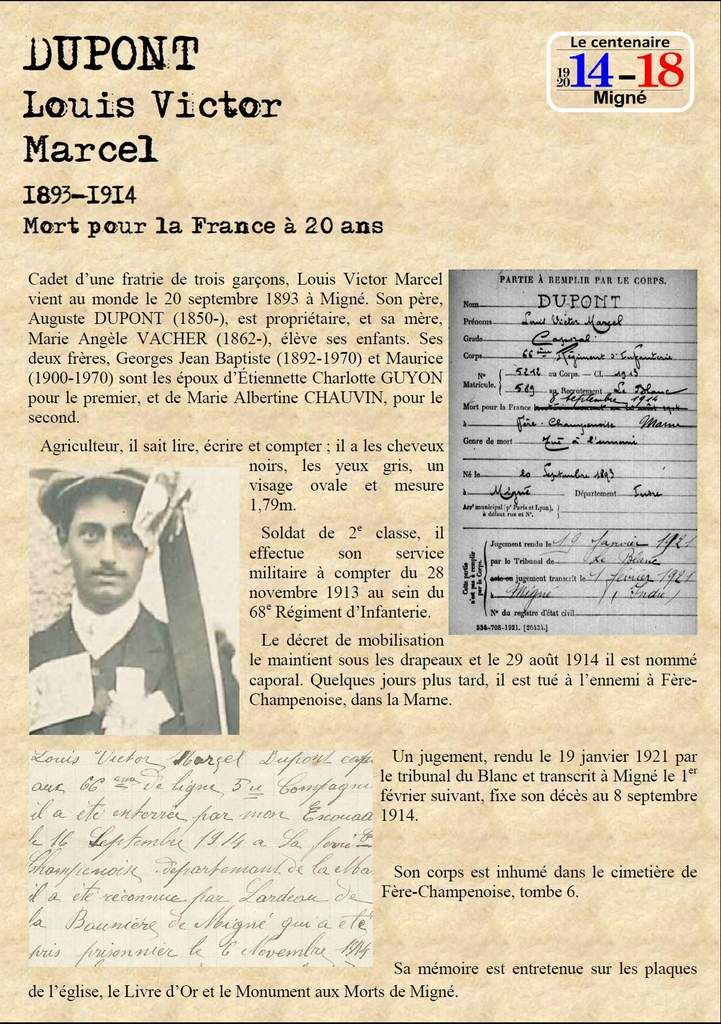 DUPONT
Louis Victor
Marcel
1893-1914
Mort pour la France à 20 ans
Le centenaire
19
20
14-18
Migné
Cadet d'une fratrie de trois garçons, Louis Victor Marcel
vient au monde le 20 septembre 1893 à Migné. Son père,
Auguste DUPONT (1850-), est propriétaire, et sa mère,
Marie Angèle VACHER (1862-), élève ses enfants. Ses
deux frères, Georges Jean Baptiste (1892-1970) et Maurice
(1900-1970) sont les époux d'Étiennette Charlotte GUYON
pour le premier, et de Marie Albertine CHAUVIN, pour le
second.
Agriculteur, il sait lire, écrire et compter ; il a les cheveux
noirs, les yeux gris, un
visage ovale et mesure
1,79m.
Soldat de 2e classe, il
effectue son service
militaire à compter du 28
novembre 1913 au sein du
68e Régiment d'Infanterie.
Le décret de mobilisation
le maintient sous les drapeaux et le 29 août 1914 il est nommé
caporal. Quelques jours plus tard, il est tué à l'ennemi à Fère-
Champenoise, dans la Marne.
PARTIE À REMPLIR PAR LE CORPS.
Nom DUPONT
Prénoms Louis Victor Marcel
Grade Caporal
Corps 66ème Régiment d'Infanterie
N° 5212 au Corps. — Cl. 1913
Matricule. 589 au Recrutement Le Blanc
8 septembre 1914
Mort pour la France
à Fère-Champenoise Marne
Genre de mort Tué à l'ennemi
Né le 20 Septembre 1893
à Migné Département Indre
Arrt municipal (pr Paris et Lyon),
à défaut rue et N°.
Cette partie
n'est pas à remplir
par le Corps.
Jugement rendu le 19 Janvier 1921
par le Tribunal de Le Blanc
acte ou jugement transcrit le 1 février 1921
à Migné (Indre)
N° du registre d'état civil
534-708-1921. [26434.]
Louis Victor Marcel Dupont capo
au 66ème de ligne 5e Compagni
il a été enterrée par mon Escouad
le 16 Septembre 1914 a La ferre
Champenoise departemant de la Ma
il a été reconnue par Lardeau de
la Bauniére de Migné qui a été
pris prisonnier le 6 Novembre 1914
Un jugement, rendu le 19 janvier 1921 par
le tribunal du Blanc et transcrit à Migné le 1er
février suivant, fixe son décès au 8 septembre
1914.
Son corps est inhumé dans le cimetière de
Fère-Champenoise, tombe 6.
Sa mémoire est entretenue sur les plaques
de l'église, le Livre d'Or et le Monument aux Morts de Migné.